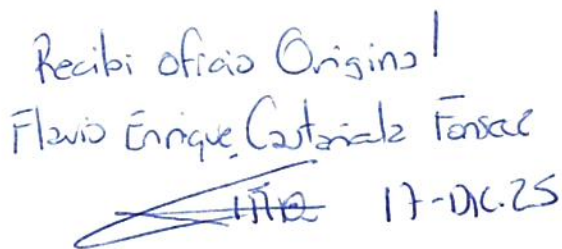 Recibi oficio Original
Flavio Enrique Castañeda Fonseca
17-DIC.25